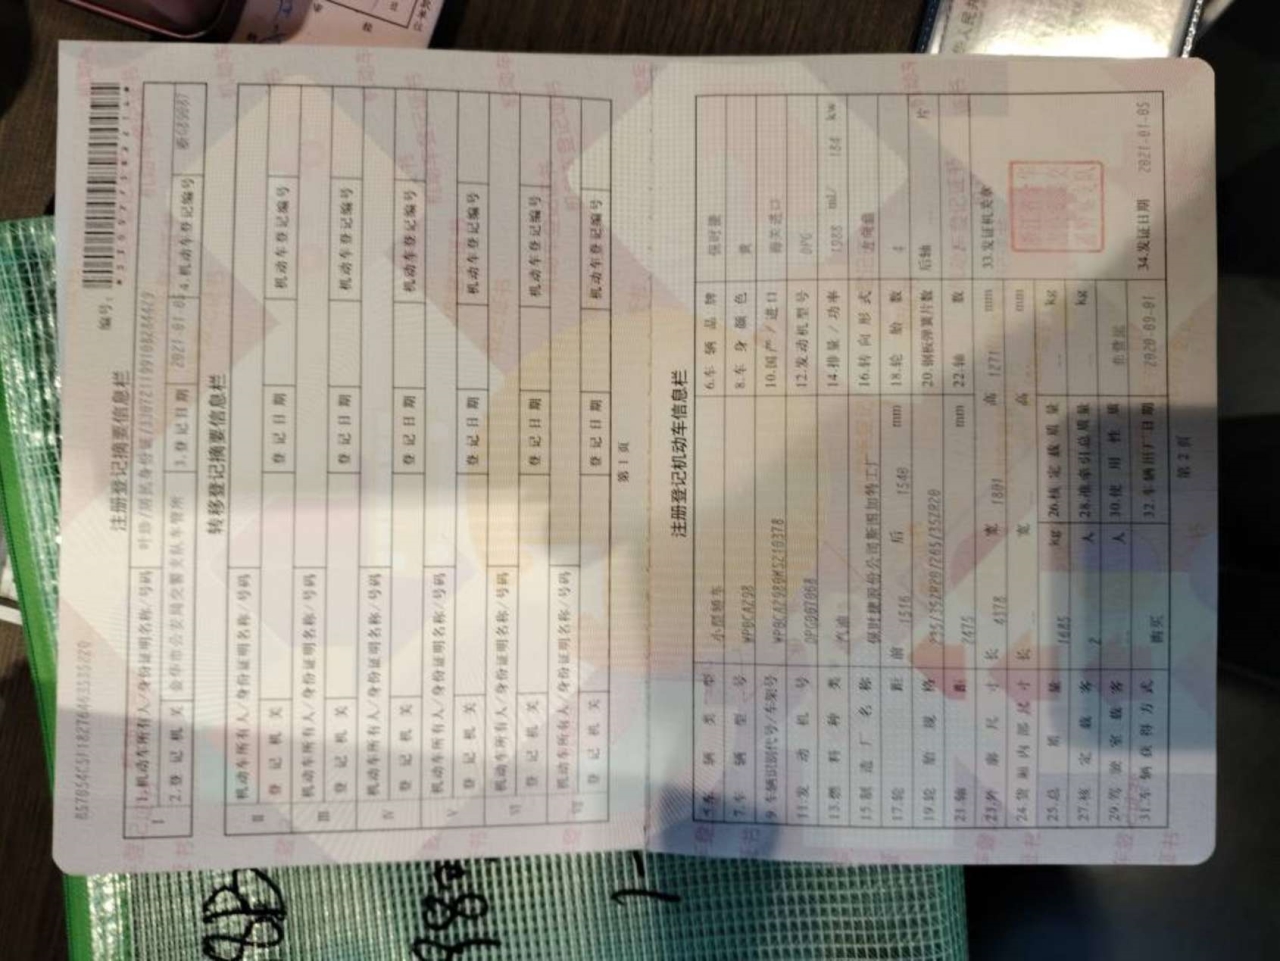 857054C5118276463335220
编号:
注册登记摘要信息栏
I
1.机动车所有人/身份证明名称/号码
/居民身份证/
2.登记机关 金华市公安局交警支队车管所 3.登记日期 2021-01-05 4.机动车登记编号
转移登记摘要信息栏
II
机动车所有人/身份证明名称/号码
登记机关 登记日期 机动车登记编号
III
机动车所有人/身份证明名称/号码
登记机关 登记日期 机动车登记编号
IV
机动车所有人/身份证明名称/号码
登记机关 登记日期 机动车登记编号
V
机动车所有人/身份证明名称/号码
登记机关 登记日期 机动车登记编号
VI
机动车所有人/身份证明名称/号码
登记机关 登记日期 机动车登记编号
VII
机动车所有人/身份证明名称/号码
登记机关 登记日期 机动车登记编号
第1页
注册登记机动车信息栏
5.车辆类型 小型轿车 6.车辆品牌 保时捷
7.车辆型号 WP0CAZ98 8.车身颜色 黄
9.车辆识别代号/车架号 WP0CAZ989MS210378 10.国产/进口 海关进口
11.发动机号 12.发动机型号 DPG
13.燃料种类 汽油 14.排量/功率 1988 ml/ 184 kw
15.制造厂名称 保时捷股份公司斯图加特工厂 16.转向形式
17.轮距 前 1516 后 1540 mm 18.轮胎数 4
19.轮胎规格 235/35ZR20/265/35ZR20 20.钢板弹簧片数 后轴 片
21.轴距 2475 mm 22.轴数
23.外廓尺寸 长 4378 宽 1801 高 1271 mm
24.货厢内部尺寸 长 宽 高 mm
25.总质量 1685 kg 26.核定载质量 kg
27.核定载客 2 人 28.准牵引总质量 kg
29.驾驶室载客 人 30.使用性质 非营运
31.车辆获得方式 购买 32.车辆出厂日期 2020-09-01
33.发证机关章
34.发证日期 2021-01-05
第2页